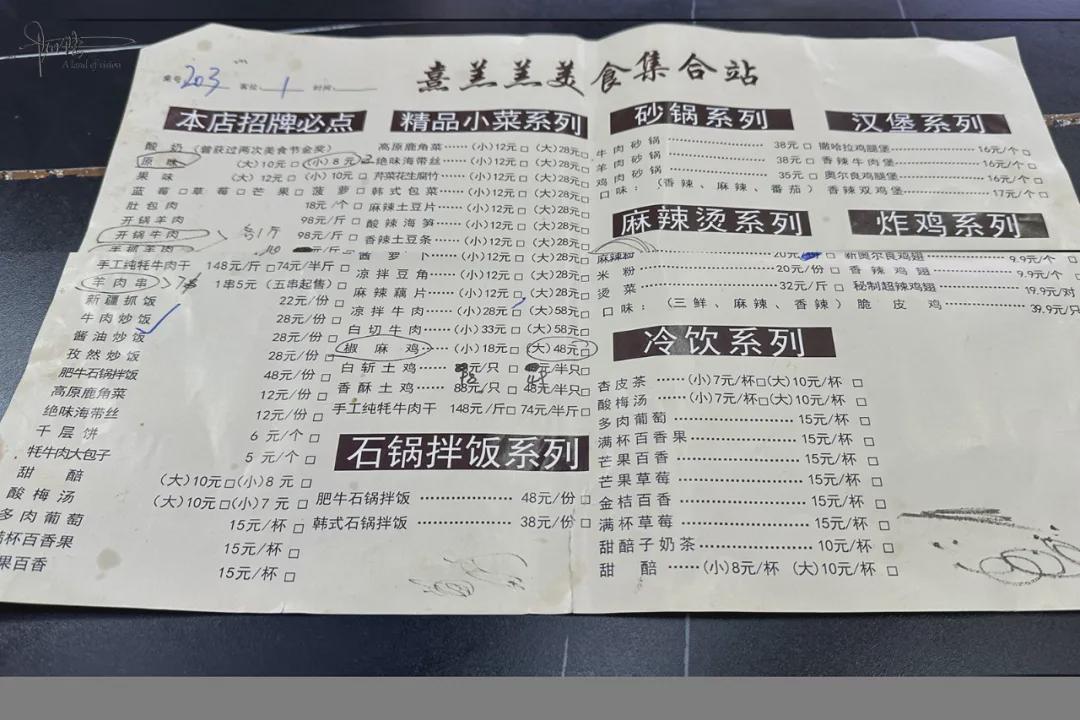 A land of vision
熹羔羔美食集合站
桌号 203 客位: 1 时间:
本店招牌必点
酸奶(曾获过两次美食节金奖)
原味 (大)10元□(小)8元□
果味 (大)12元□ (小)10元□
蓝莓□草莓□芒果□菠萝□
肚包肉 18元/个□
开锅羊肉 98元/斤□
开锅牛肉 98元/斤□
手抓羊肉 元/斤□
手工纯牦牛肉干 148元/斤□74元/半斤□
羊肉串 1串5元(五串起售)□
新疆抓饭 22元/份□
牛肉炒饭 28元/份□
酱油炒饭 28元/份□
孜然炒饭 28元/份□
肥牛石锅拌饭 48元/份□
高原鹿角菜 12元/份□
绝味海带丝 12元/份□
千层饼 6元/个□
牦牛肉大包子 5元/个□
甜醅 (大)10元□(小)8元□
酸梅汤 (大)10元□(小)7元□
多肉葡萄 15元/杯□
满杯百香果 15元/杯□
果百香 15元/杯□
精品小菜系列
高原鹿角菜……(小)12元□ (大)28元□
绝味海带丝……(小)12元□ (大)28元□
芹菜花生腐竹……(小)12元□ (大)28元□
韩式包菜……(小)12元□ (大)28元□
麻辣土豆片……(小)12元□ (大)28元□
酸辣海笋……(小)12元□ (大)28元□
香辣土豆条……(小)12元□ (大)28元□
萝卜……(小)12元□ (大)28元□
凉拌豆角……(小)12元□ (大)28元□
麻辣藕片……(小)12元□ (大)28元□
凉拌牛肉……(小)28元□ (大)58元□
白切牛肉……(小)33元□ (大)58元□
椒麻鸡……(小)18元□ (大)48元□
白斩土鸡……元/只□ 元/半只□
香酥土鸡……88元/只□ 48元/半只□
手工纯牦牛肉干 148元/斤□ 74元/半斤□
石锅拌饭系列
肥牛石锅拌饭……48元/份□
韩式石锅拌饭……38元/份□
砂锅系列
牛肉砂锅……38元□
羊肉砂锅……38元□
鸡肉砂锅……35元□
口味:(香辣、麻辣、番茄)
麻辣烫系列
麻辣粉……20元/份□
米粉……20元/份□
烫菜……32元/斤□
口味:(三鲜、麻辣、香辣)
冷饮系列
杏皮茶……(小)7元/杯□(大)10元/杯 □
酸梅汤……(小)7元/杯□(大)10元/杯 □
多肉葡萄……15元/杯 □
满杯百香果……15元/杯 □
芒果百香……15元/杯 □
芒果草莓……15元/杯 □
金桔百香……15元/杯 □
满杯草莓……15元/杯 □
甜醅子奶茶……10元/杯 □
甜醅……(小)8元/杯 (大)10元/杯 □
汉堡系列
撒哈拉鸡腿堡……16元/个□
香辣牛肉堡……16元/个□
奥尔良鸡腿堡……16元/个□
香辣双鸡堡……17元/个□
炸鸡系列
新奥尔良鸡翅……9.9元/个 □
香辣鸡翅……9.9元/个 □
秘制超辣鸡翅……19.9元/对
脆皮鸡……39.9元/只